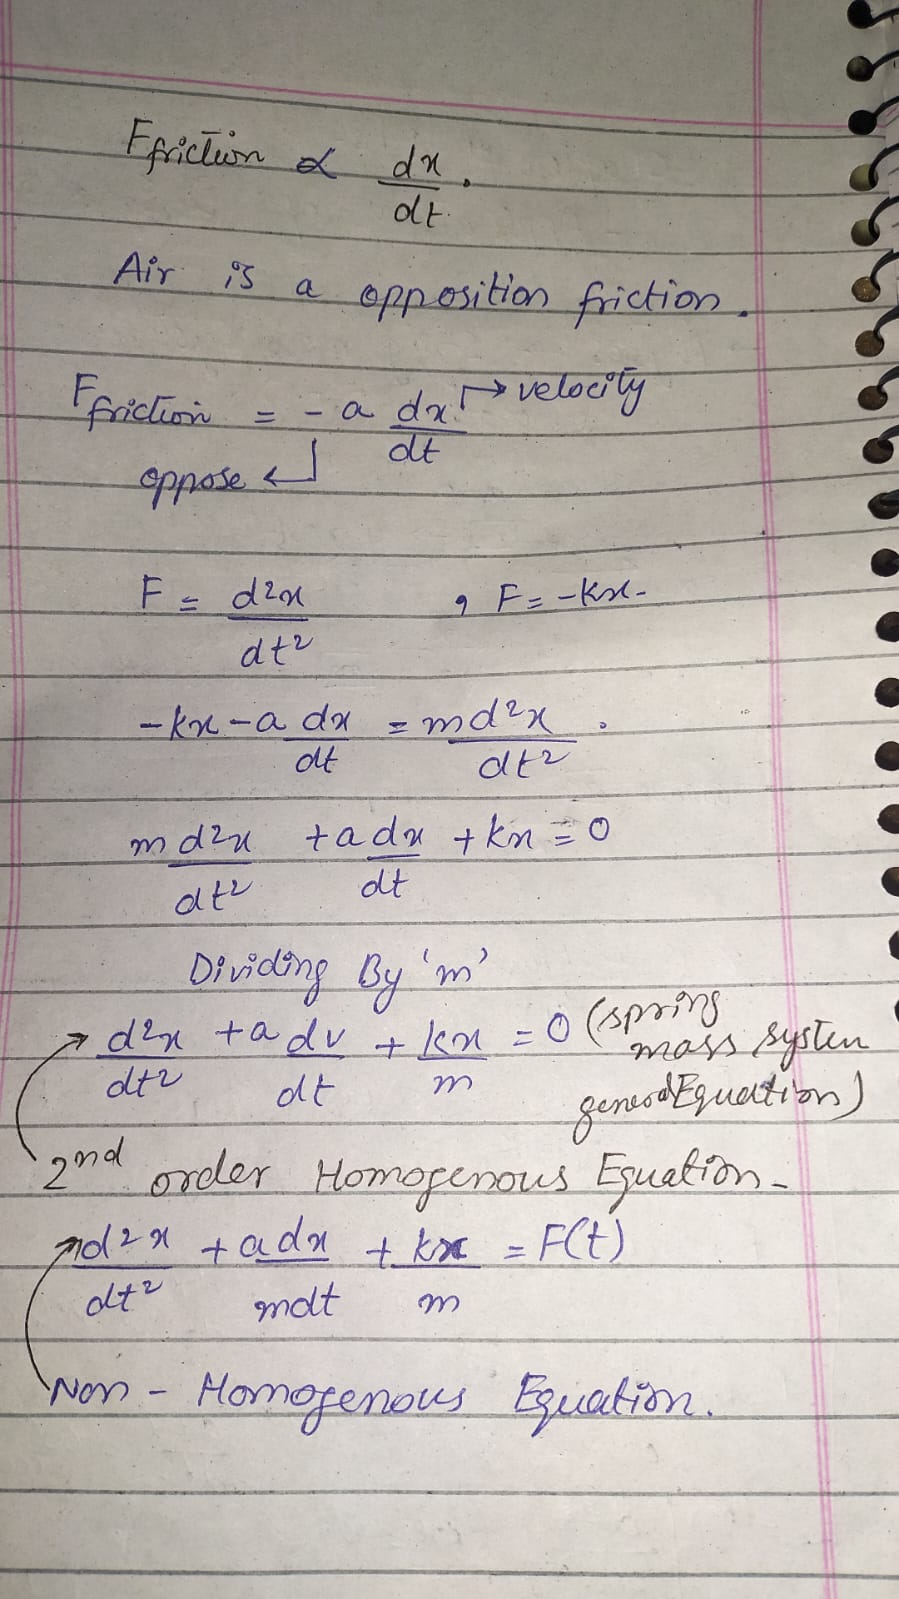 F friction ∝ dx/dt.
Air is a opposition friction.
F friction = - a dx/dt → velocity
oppose ↵
F = d²x/dt² , F = -kx-
-kx - a dx/dt = m d²x/dt² .
m d²x/dt² + a dx/dt + kx = 0
Dividing By 'm'
d²x/dt² + a dv/dt + kx/m = 0 (spring
mass system
general Equation)
2nd order Homogenous Equation-
d²x/dt² + a dx/mdt + kx/m = F(t)
Non - Homogenous Equation.